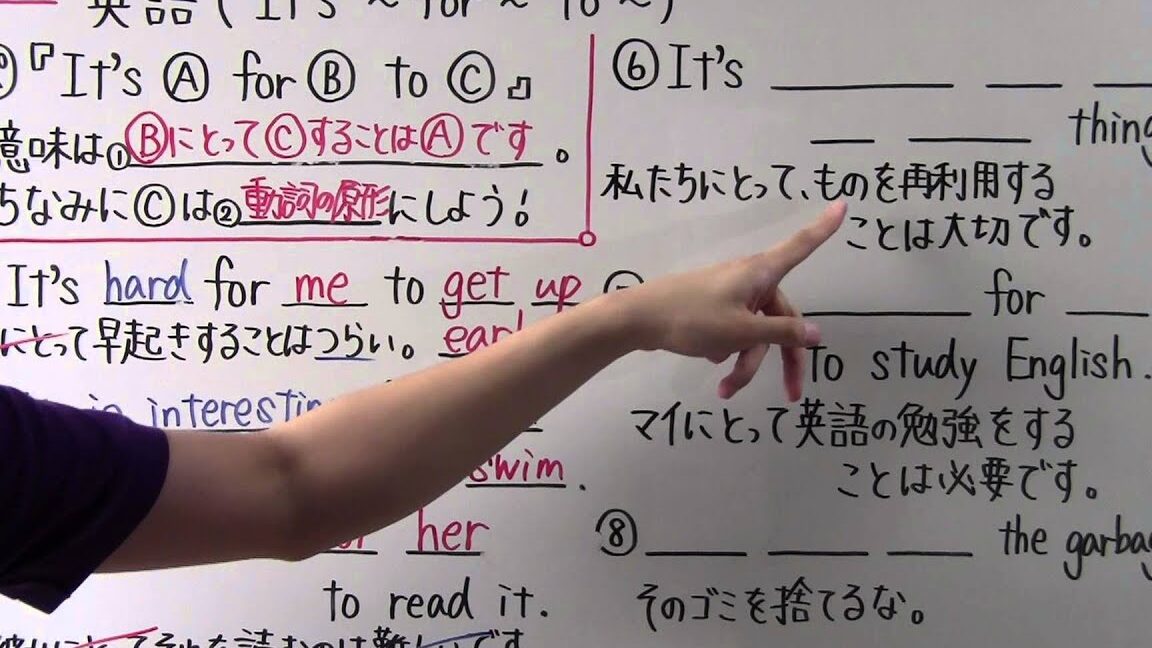 英語 ( It's ~ for ~ to ~ )
『It's Ⓐ for Ⓑ to Ⓒ』
意味は①ⒷにとってⒸすることはⒶです。
ちなみにⒸは②動詞の原形にしよう!
It's hard for me to get up
にとって早起きすることはつらい。
swim.
her
to read it.
⑥It's ______ ____
____ ______
私たちにとって、ものを再利用する
ことは大切です。
______ for ____
to study English.
マイにとって英語の勉強をする
ことは必要です。
⑧____ ____ ____ the
そのゴミを捨てるな。